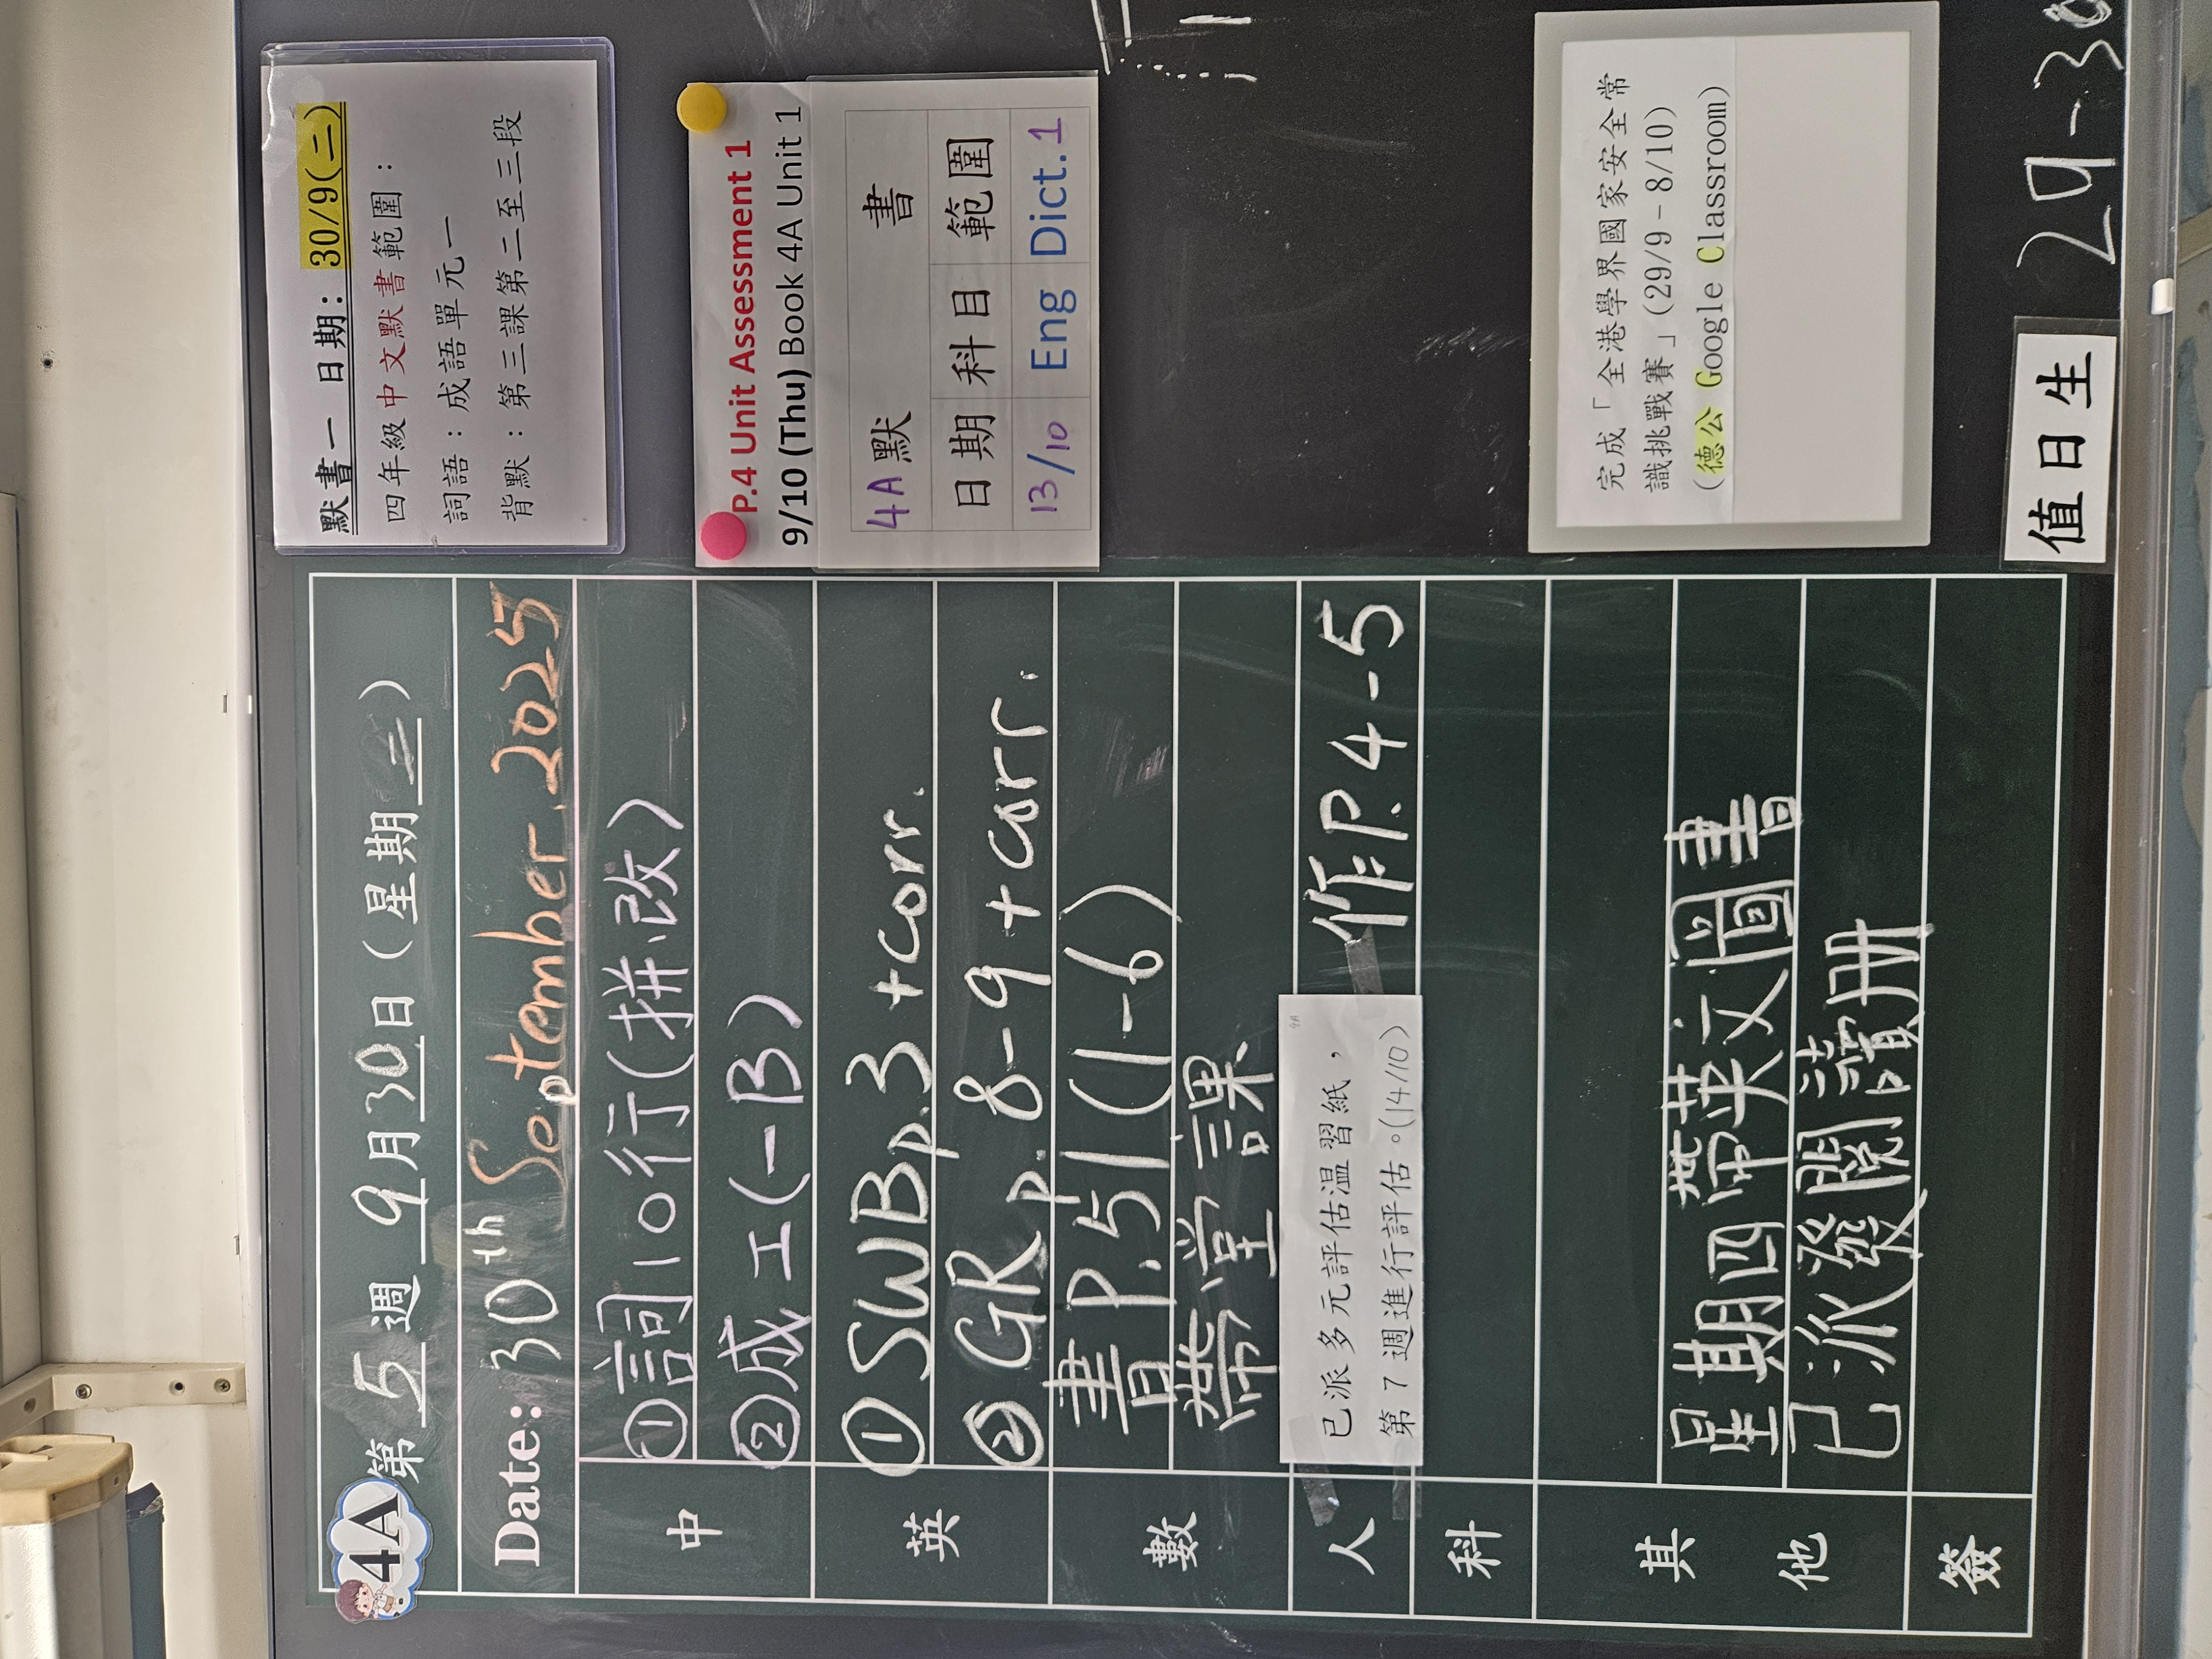 4A 第 5 週 9 月 30 日 ( 星期 二 )
Date: 30th September, 2025
中
①詞10行(拼、改)
②成工(一B)
英
①SWBp.3 +corr.
②GRp.8-9 +corr.
數
書P.51(1-6)
帶堂課
人
已派多元評估温習紙，
第7週進行評估。(14/10)
4A
作P.4-5
科
其他
星期四帶英文圖書
已派發閱讀冊
簽
默書一 日期: 30/9(二)
四年級中文默書範圍：
詞語：成語單元一
背默：第三課第二至三段
P.4 Unit Assessment 1
9/10 (Thu) Book 4A Unit 1
4A 默 書
日期 科目 範圍
13/10 Eng Dict.1
完成「全港學界國家安全常
識挑戰賽」(29/9 - 8/10)
(德公 Google Classroom)
值日生
29-30